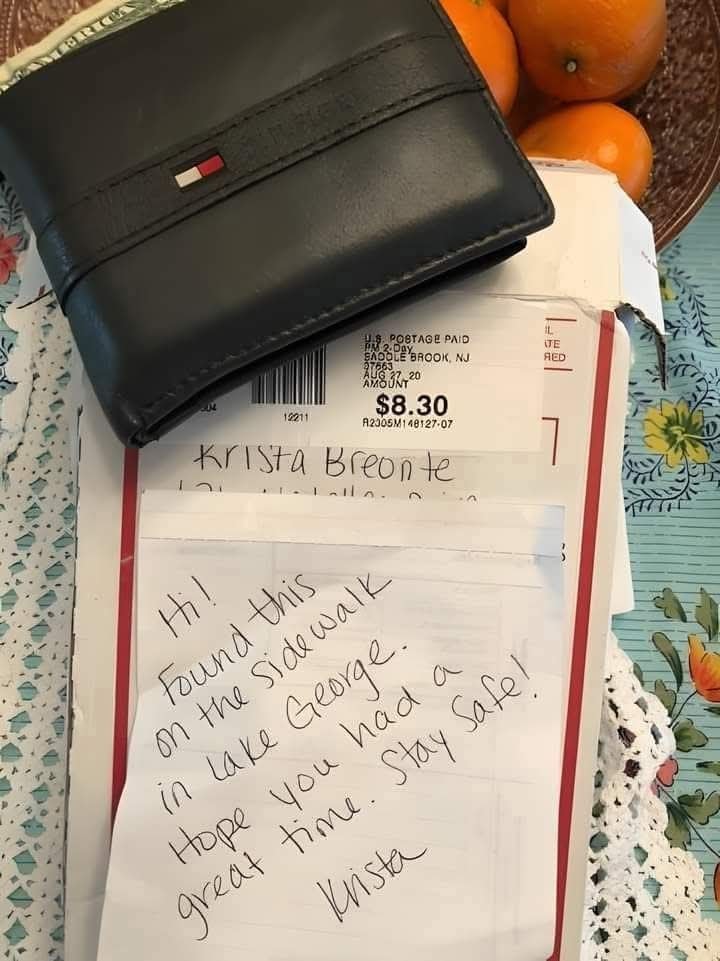 AMERICA
U.S. POSTAGE PAID
PM 2-Day
SADDLE BROOK, NJ
07663
AUG 27, 20
AMOUNT
$8.30
R2305M148127-07
04
12211
IL
ATE
RED
Krista Breonte
Hi!
Found this
on the sidewalk
in Lake George.
Hope you had a
great time. Stay Safe!
Krista